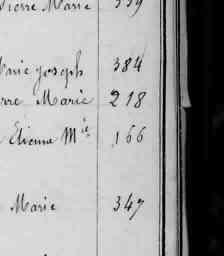 Pierre Marie 339
Marie Joseph 384
rre Marie 218
Etienne Mie 166
Marie 347